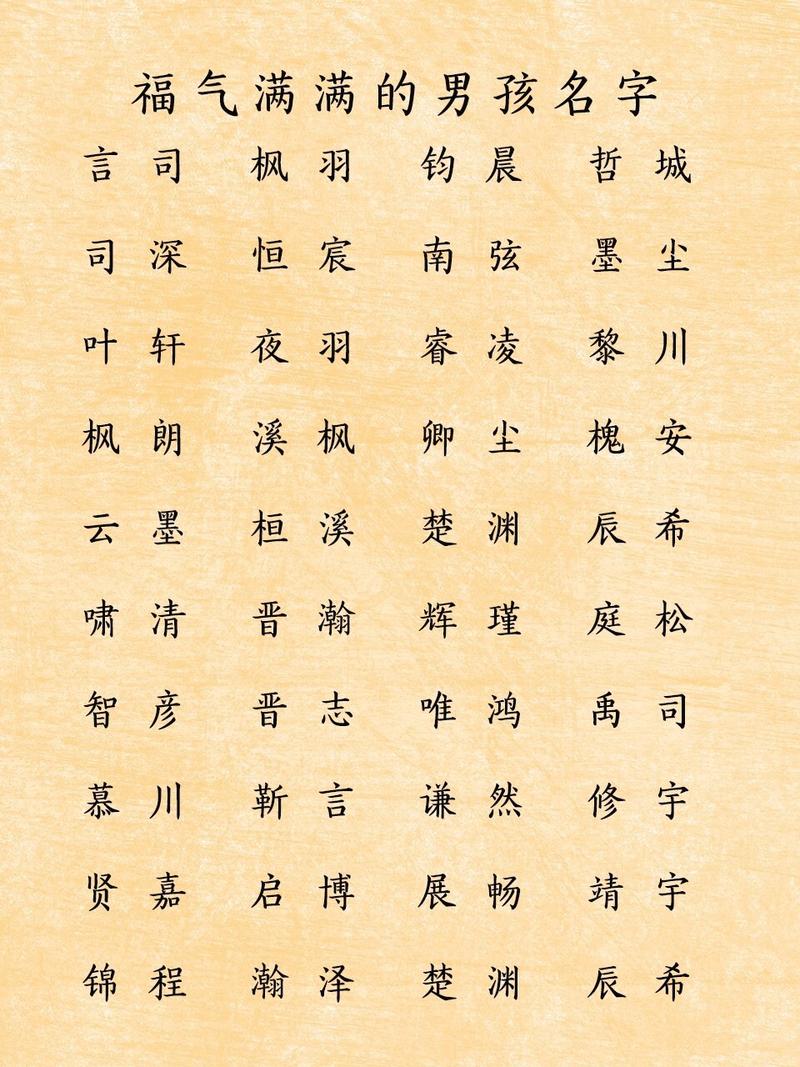 福气满满的男孩名字
言司 枫羽 钧晨 哲城
司深 恒宸 南弦 墨尘
叶轩 夜羽 睿凌 黎川
枫朗 溪枫 卿尘 槐安
云墨 桓溪 楚渊 辰希
啸清 晋瀚 辉瑾 庭松
智彦 晋志 唯鸿 禹司
慕川 靳言 谦然 修宇
贤嘉 启博 展畅 靖宇
锦程 瀚泽 楚渊 辰希